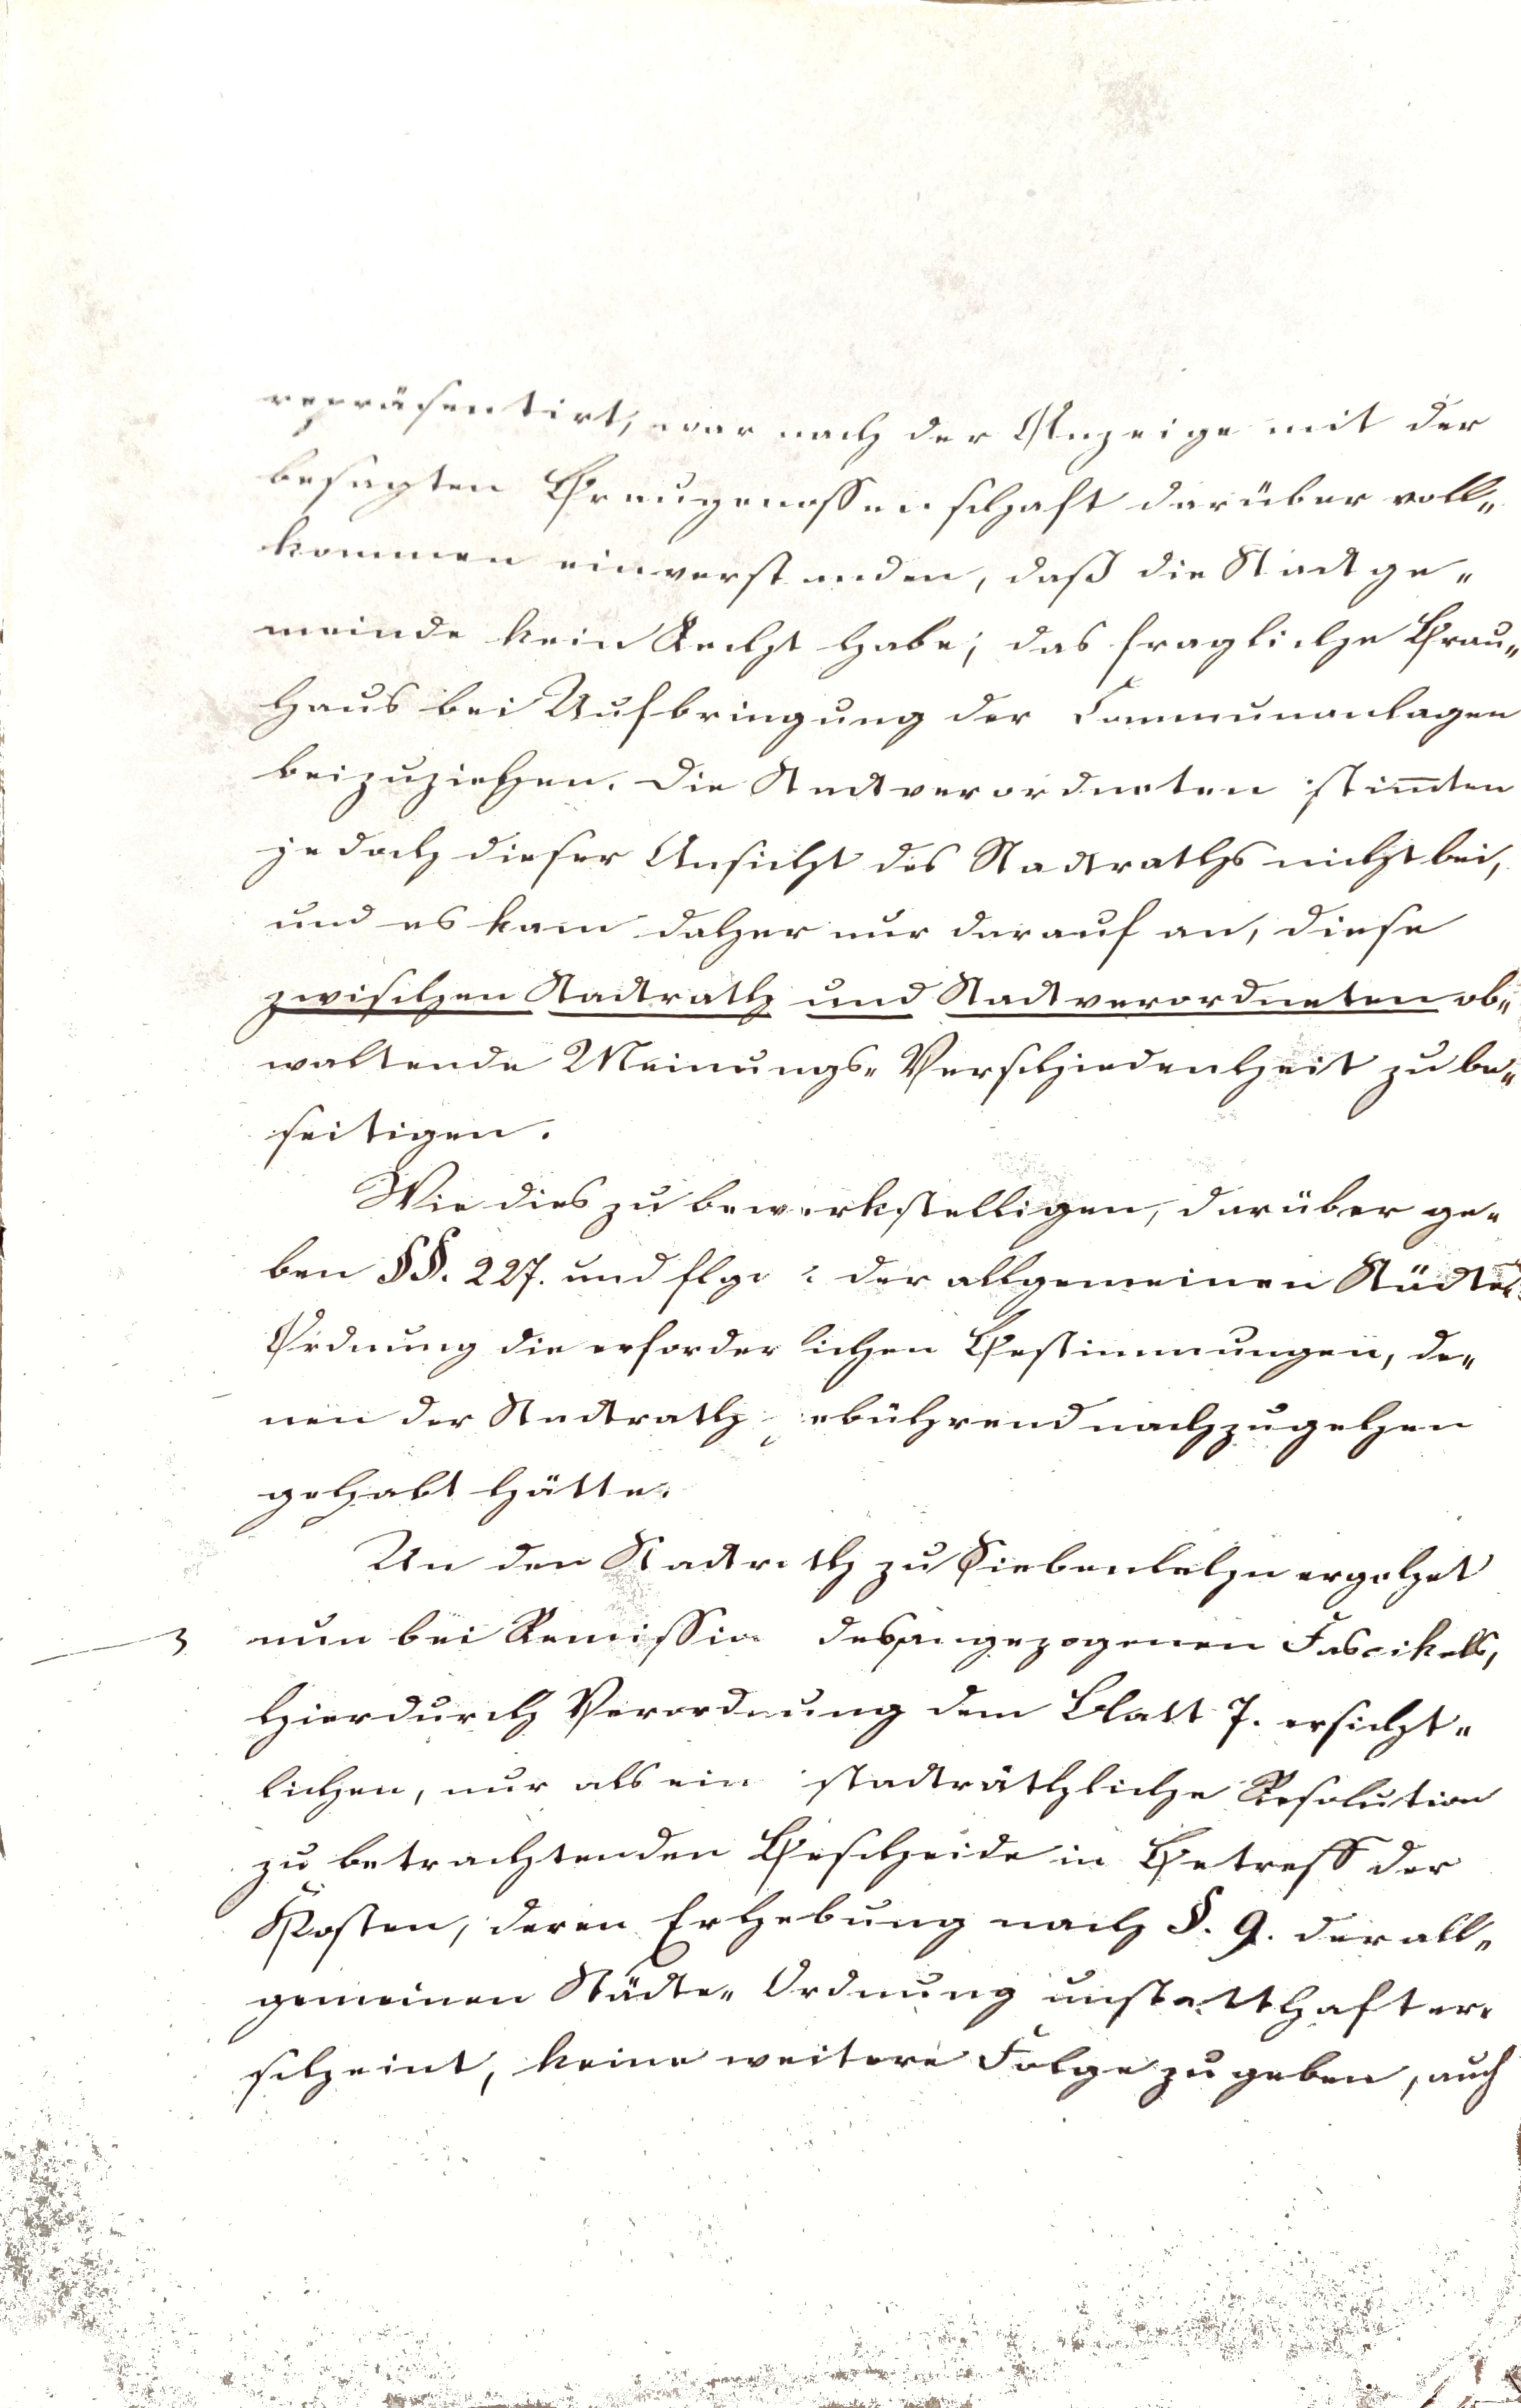 repräsentirt, war nach der Anzeige mit der
besagten Braugenossenschaft darüber voll„
kommen einverstanden, daß die Stadtge„
meinde kein Recht habe, das fragliche Brau„
haus bei Aufbringung der Communanlagen
beizuziehen. Die Stadtverordneten stim̄ten
jedoch dieser Ansicht des Stadtraths nicht bei,
und es kam daher nur darauf an, diese
zwischen Stadtrath und Stadtverordneten ob„
waltende Meinungs„Verschiedenheit zu be„
seitigen.
Wie dies zu bewerkstelligen, darüber ge„
ben §§. 227. und flge der allgemeinen Städte„
Ordnung die erforderlichen Bestimmungen, de„
nen der Stadtrath gebührend nachzugehen
gehabt hätte.
An den Stadtrath zu Siebenlehn ergehet
nun bei Remission des angezogenen Fascikels,
hierdurch Verordnung dem Blatt 7. ersicht„
lichen, nur als ein stadträthliche Resolution
zu betrachtenden Bescheide in Betreff der
Kosten, deren Erhebung nach §. 9. der all„
gemeinen Städte„Ordnung unstatthaft er„
scheint, keine weitere Folge zu geben, auch